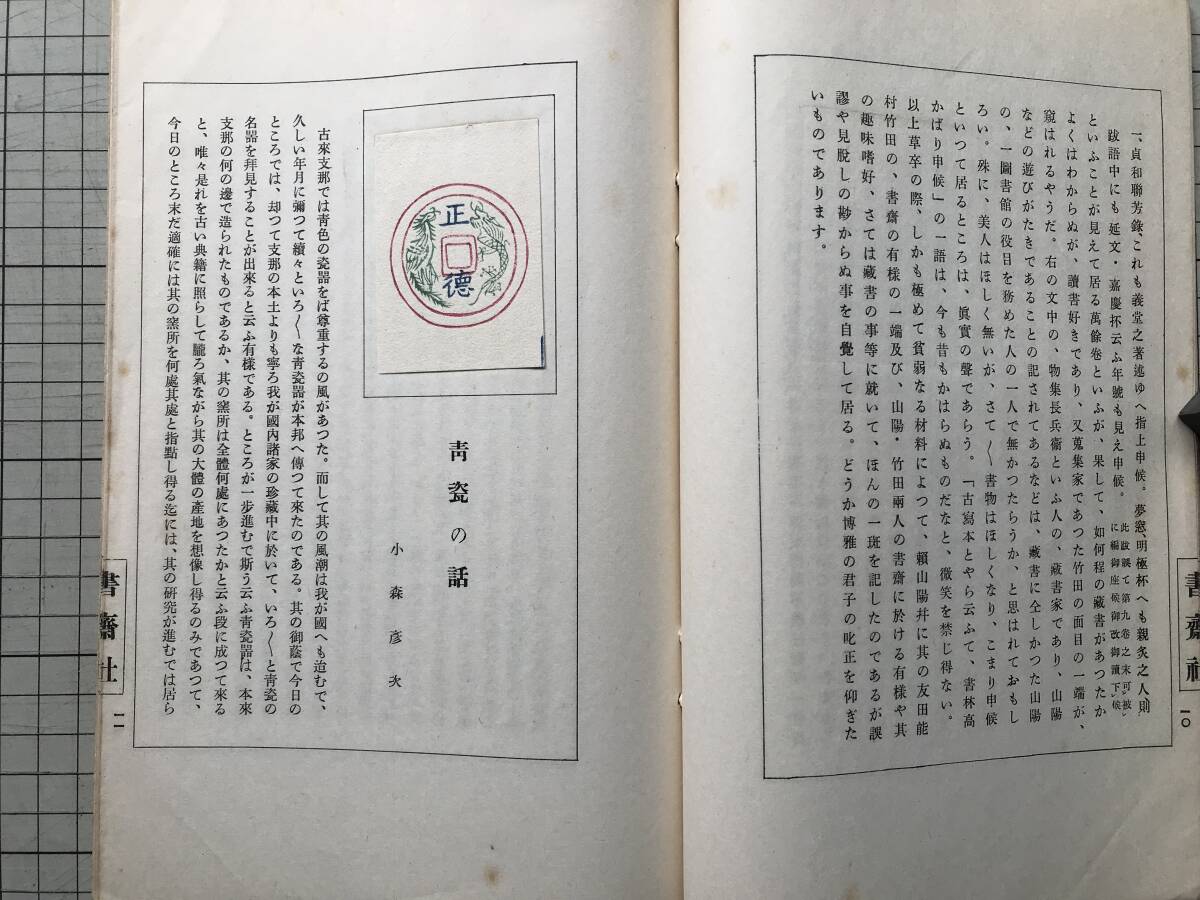 一、貞和聯芳錄、これも義堂之著述ゆへ指上申候。夢窓、明極杯へも親炙之人則
跋語中にも延文・嘉慶抔云ふ年號も見え申候。此跋誤て第九卷之末可㆑被㆑
に編御座候御改御讀下㆑候
といふことが見えて居る萬餘卷といふが、果して、如何程の藏書があつたか
よくはわからぬが、讀書好きであり、又蒐集家であつた竹田の面目の一端が、
窺はれるやうだ。右の文中の、物集長兵衞といふ人の、藏書家であり、山陽
などの遊びがたきであることの記されてあるなどは、藏書に仝しかつた山陽
の、一圖書館の役目を務めた人の一人で無かつたらうか、と思はれておもし
ろい。殊に、美人はほしく無いが、さて〳〵書物はほしくなり、こまり申候
といつて居るところは、眞實の聲であらう。「古寫本とやら云ふて、書林高
かばり申候」の一語は、今も昔もかはらぬものだなと、微笑を禁じ得ない。
以上草卒の際、しかも極めて貧弱なる材料によつて、賴山陽幷に其の友田能
村竹田の、書齋の有樣の一端及び、山陽・竹田兩人の書齋に於ける有樣や其
の趣味嗜好、さては藏書の事等に就いて、ほんの一斑を記したのであるが誤
謬や見脫しの尠からぬ事を自覺して居る。どうか博雅の君子の叱正を仰ぎた
いものであります。
書齋社
一〇
正德
靑瓷の話
小森彦次
古來支那では靑色の瓷器をば尊重するの風があつた。而して其の風潮は我が國へも迨むで、
久しい年月に彌つて續々といろ〳〵な靑瓷器が本邦へ傳つて來たのである。其の御蔭で今日の
ところでは、却つて支那の本土よりも寧ろ我が國內諸家の珍藏中に於いて、いろ〳〵と靑瓷の
名器を拜見することが出來ると云ふ有樣である。ところが一步進むで斯う云ふ靑瓷器は、本來
支那の何の邊で造られたものであるか、其の窯所は全體何處にあつたかと云ふ段に成つて來る
と、唯々是れを古い典籍に照らして朧ろ氣ながら其の大體の產地を想像し得るのみであつて、
今日のところ末だ適確には其の窯所を何處其處と指點し得る迄には、其の硏究が進むでは居ら
書齋社
一一